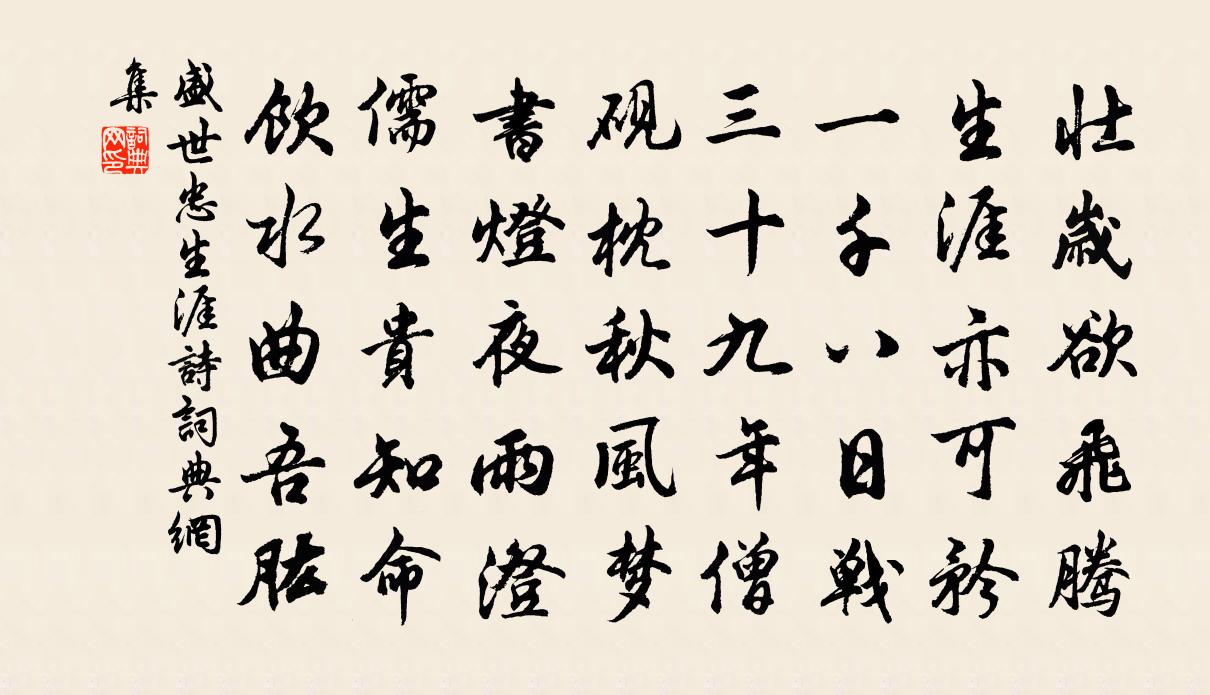 壯歲欲飛騰
生涯亦可矜
一千八日戰
三十九年僧
硯枕秋風夢
書燈夜雨澄
儒生貴知命
飲水曲吾肱
盛世忠生涯詩詞典網
集
詞典
网印